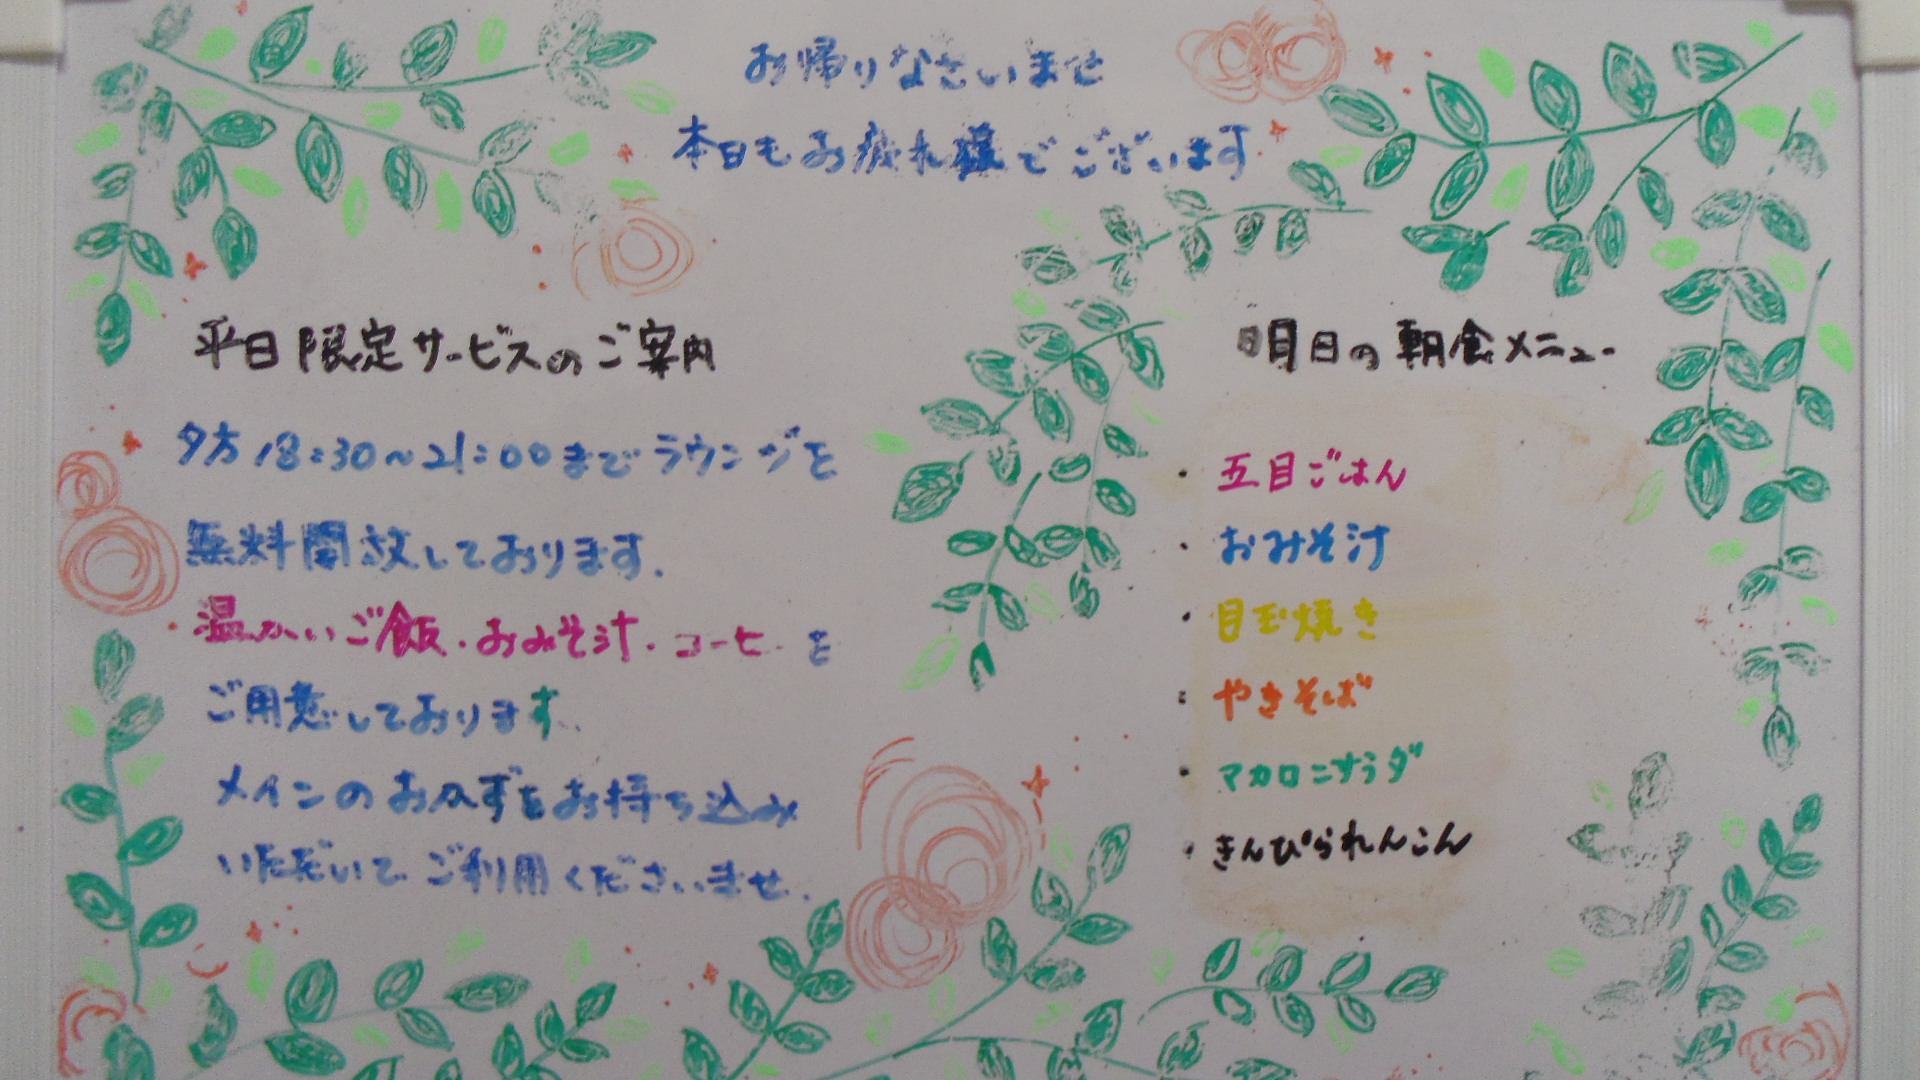 お帰りなさいませ
本日もお疲れ様でございます
平日限定サービスのご案内
夕方18:30~21:00までラウンジを
無料開放しております.
温かいご飯・おみそ汁・コーヒーを
ご用意しております.
メインのおかずをお持ち込み
いただいてご利用くださいませ.
明日の朝食メニュー
・五目ごはん
・おみそ汁
・目玉焼き
・やきそば
・マカロニサラダ
・きんぴられんこん